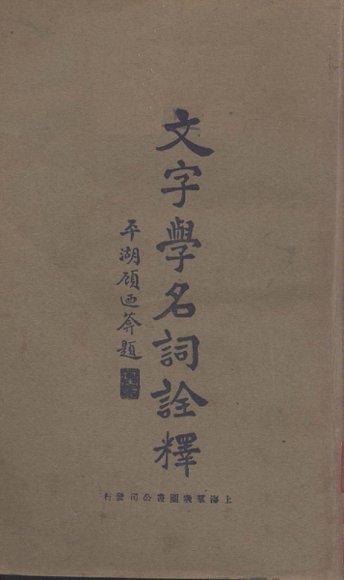 文字學名詞詮釋
平湖顧題
上海羣衆圖書公司發行